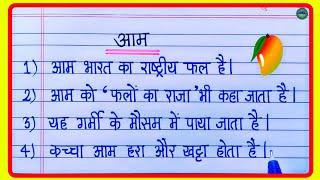 आम
1) आम भारत का राष्ट्रीय फल है।
2) आम को 'फलों का राजा' भी कहा जाता है।
3) यह गर्मी के मौसम में पाया जाता है।
4) कच्चा आम हरा और खट्टा होता है।